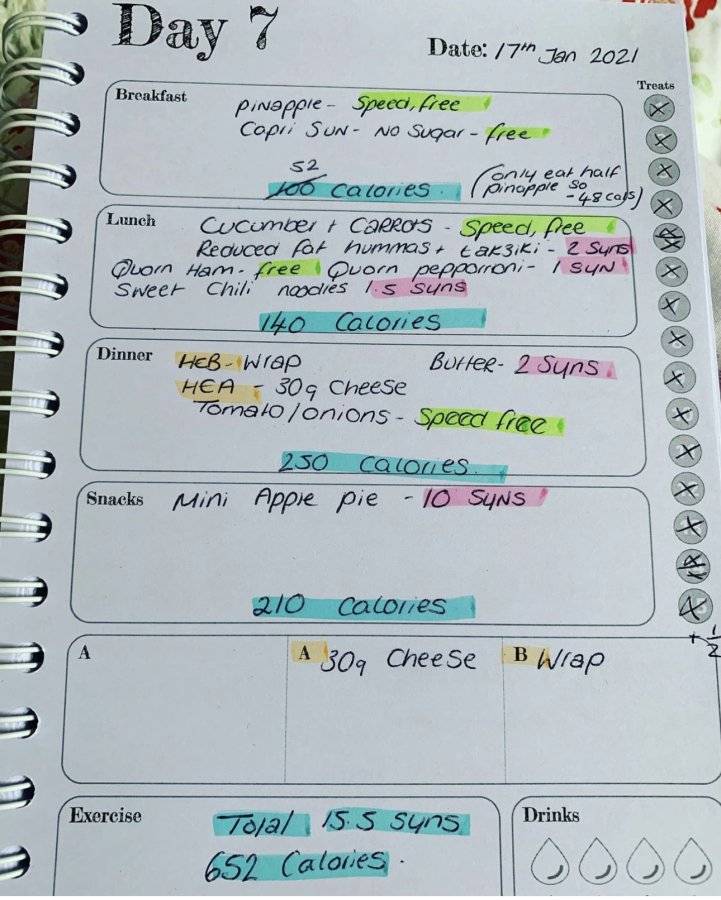 Day 7
Date: 17th Jan 2021
Treats
Breakfast
Pinapple - Speed, free
Capri Sun - No Sugar - free
52
100 Calories. (only eat half pinapple so - 48 cals)
Lunch
Cucumber + Carrots - Speed, free
Reduced fat hummas + takziki - 2 Syns
Quorn Ham - free Quorn pepporroni - 1 SYN
Sweet Chili noodles 1.5 Syns
140 Calories
Dinner
HEB - Wrap Butter - 2 Syns.
HEA - 30g Cheese
Tomato/onions - Speed free
250 Calories.
Snacks
Mini Apple pie - 10 SYNS
210 Calories
+ 1/2
A
A 30g Cheese
B Wrap
Exercise
Total 15.5 Syns
652 Calories.
Drinks